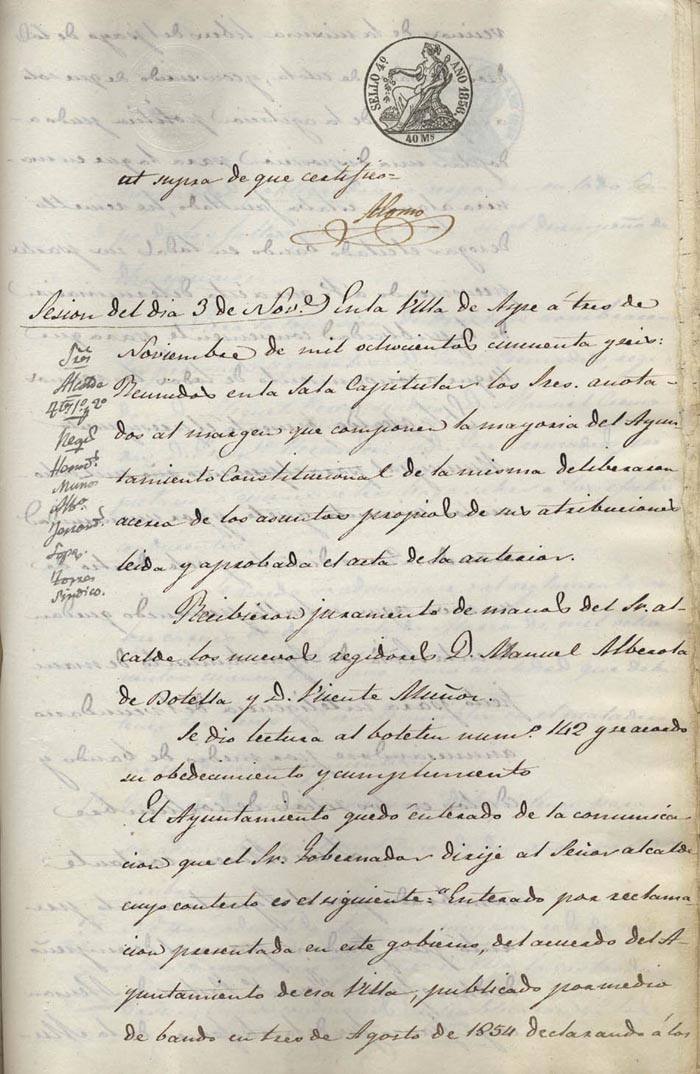 SELLO 4º AÑO 1856.
40 Ms
ut supra de que certifico=
Alomo
Sesion del dia 3 de Nov.e En la Villa de Aspe á tres de
Noviembre de mil ochocientos cincuenta y seis:
Reunidos en la Sala Capitular los Sres. anota-
dos al margen que componen la mayoria del Ayun-
tamiento Constitucional de la misma deliberaron
acerca de los asuntos propios de sus atribuciones
leida y aprobada el acta de la anterior.
Sres
Alcalde
1º y 2º
Regs
Muños
Torres
Sindico.
Recibieron juramento de manos del Sr. al-
calde los nuevos regidores D. Manuel Alberola
de Botella y D. Vicente Muñor.
Se dio lectura al boletin num.o 142 y se acordo
su obedecimiento y cumplimiento
El Ayuntamiento quedo enterado de la comunica-
cion que el Sr. Gobernador dirije al Señor alcalde
cuyo contesto es el siguiente: "Enterado por reclama
cion presentada en este gobierno, del acuerdo del A-
yuntamiento de esa Villa, publicado por medio
de bando en tres de Agosto de 1854 declarando á los